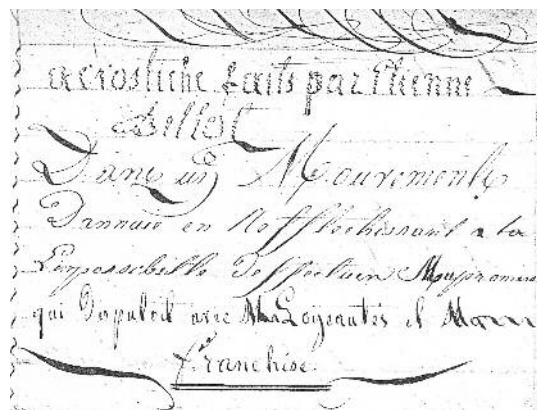 acrostiche faits par Etienne
Bellot
Dans un Mouvement
Dannuie en Reffléchissant a la
Limpossebelle Deffectuer Ma promesse
qui Disputoit avec Ma Loyeautés et Mam
franchise